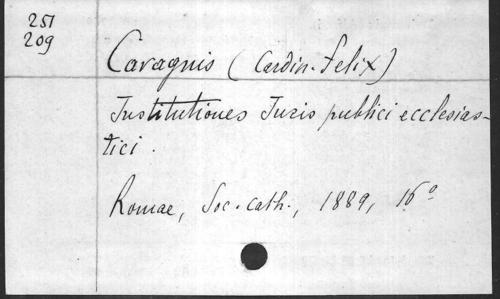 251
209
Caragnis (Cardin. Felix)
Institutiones Juris publici ecclesias-
tici.
Romae, Soc. cath., 1889, 16°